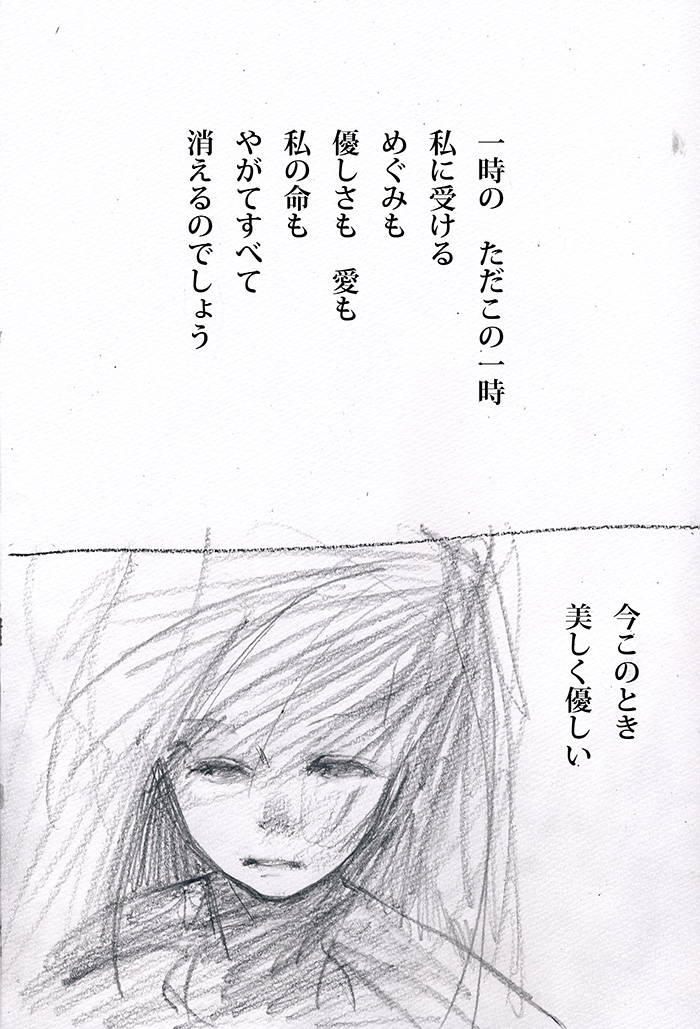 一時の　ただこの一時
私に受ける
めぐみも
優しさも　愛も
私の命も
やがてすべて
消えるのでしょう
今このとき
美しく優しい